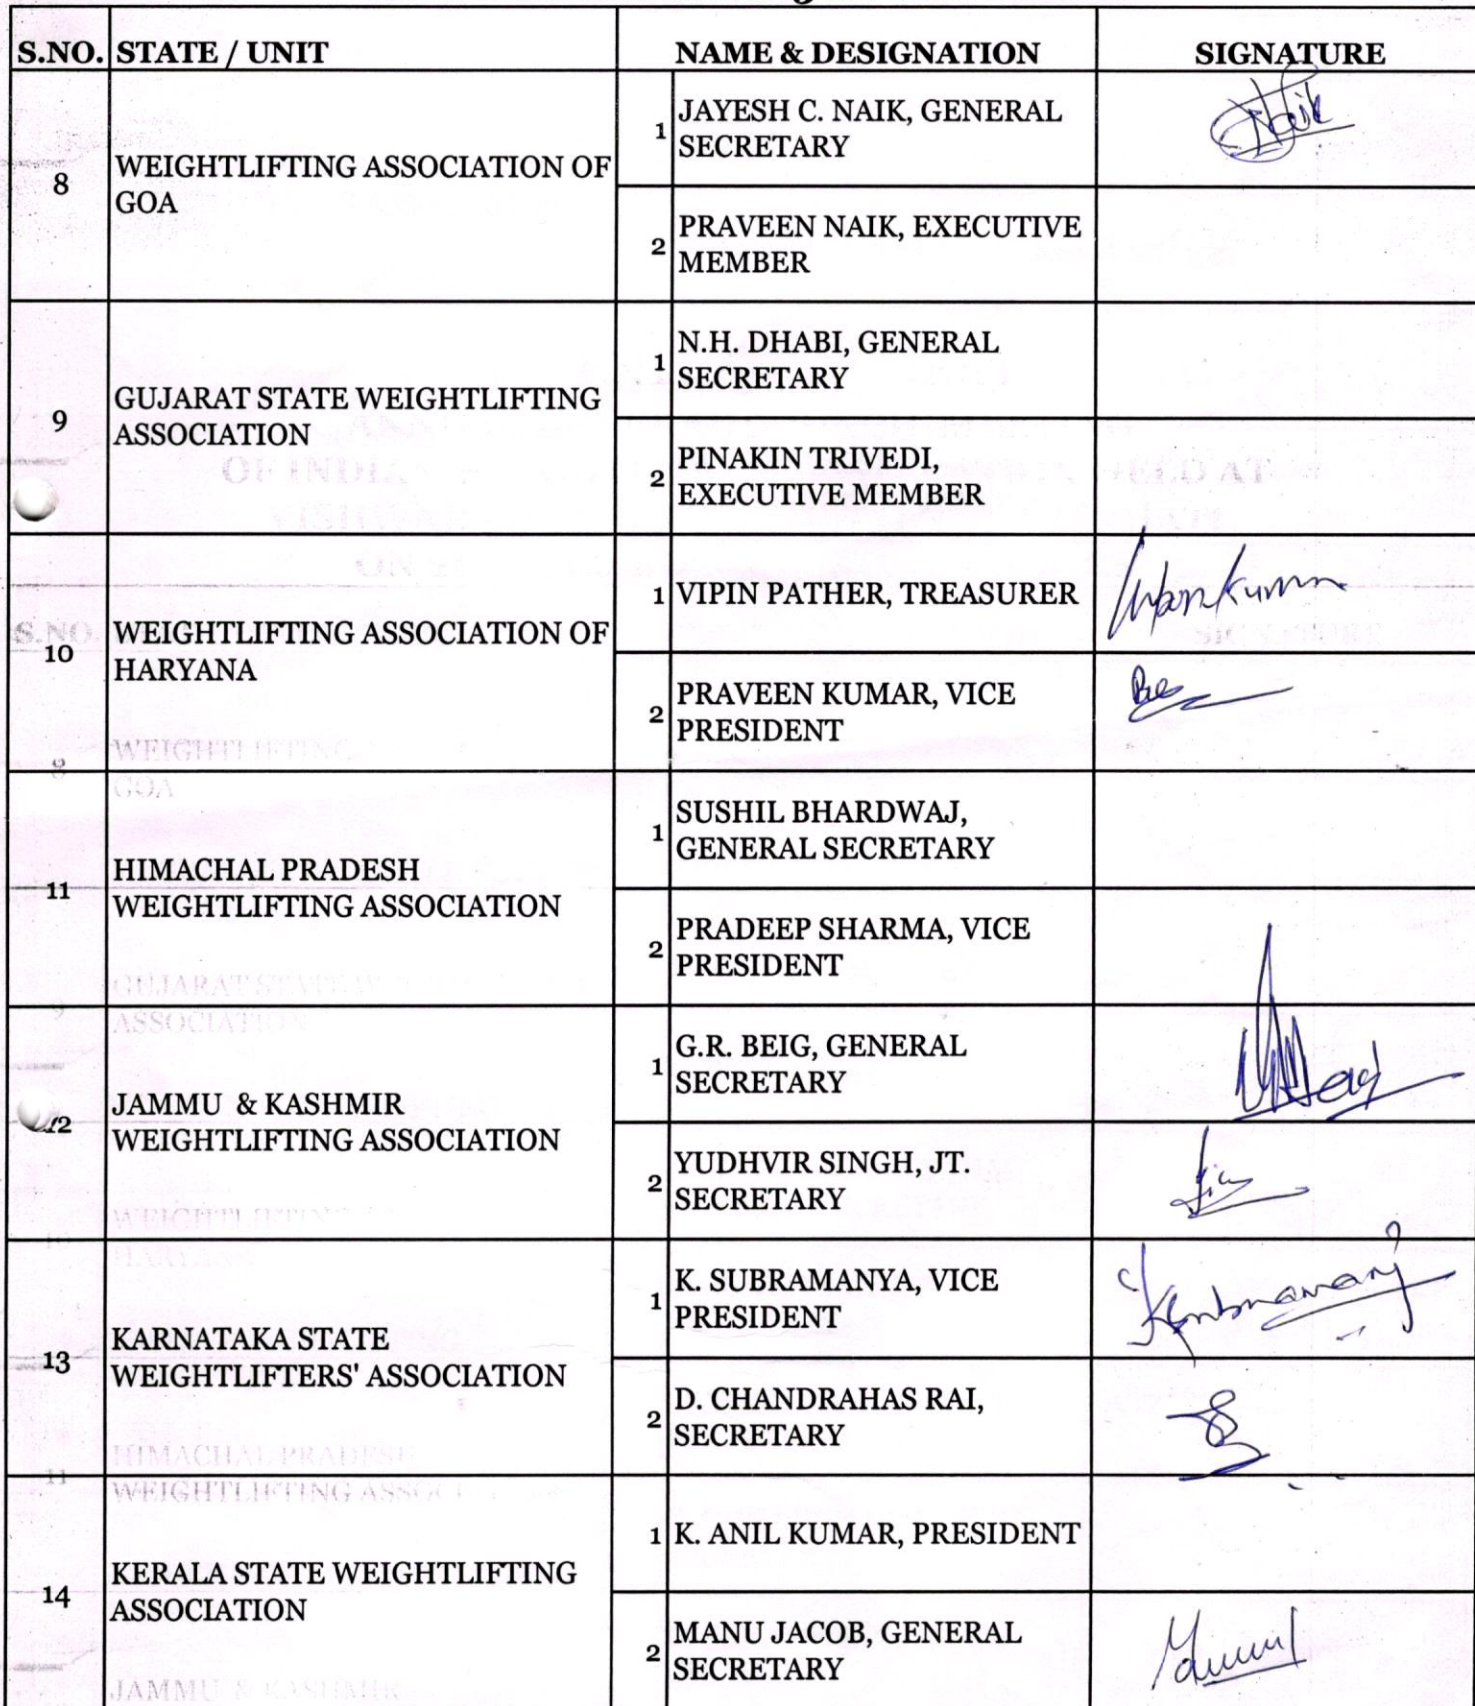 S.NO. STATE / UNIT NAME & DESIGNATION SIGNATURE
8
WEIGHTLIFTING ASSOCIATION OF
GOA
1
JAYESH C. NAIK, GENERAL
SECRETARY
Naik
2
PRAVEEN NAIK, EXECUTIVE
MEMBER
9
GUJARAT STATE WEIGHTLIFTING
ASSOCIATION
1
N.H. DHABI, GENERAL
SECRETARY
2
PINAKIN TRIVEDI,
EXECUTIVE MEMBER
10
WEIGHTLIFTING ASSOCIATION OF
HARYANA
1 VIPIN PATHER, TREASURER
2
PRAVEEN KUMAR, VICE
PRESIDENT
11
HIMACHAL PRADESH
WEIGHTLIFTING ASSOCIATION
1
SUSHIL BHARDWAJ,
GENERAL SECRETARY
2
PRADEEP SHARMA, VICE
PRESIDENT
12
JAMMU & KASHMIR
WEIGHTLIFTING ASSOCIATION
1
G.R. BEIG, GENERAL
SECRETARY
2
YUDHVIR SINGH, JT.
SECRETARY
13
KARNATAKA STATE
WEIGHTLIFTERS' ASSOCIATION
1
K. SUBRAMANYA, VICE
PRESIDENT
2
D. CHANDRAHAS RAI,
SECRETARY
14
KERALA STATE WEIGHTLIFTING
ASSOCIATION
1 K. ANIL KUMAR, PRESIDENT
2
MANU JACOB, GENERAL
SECRETARY